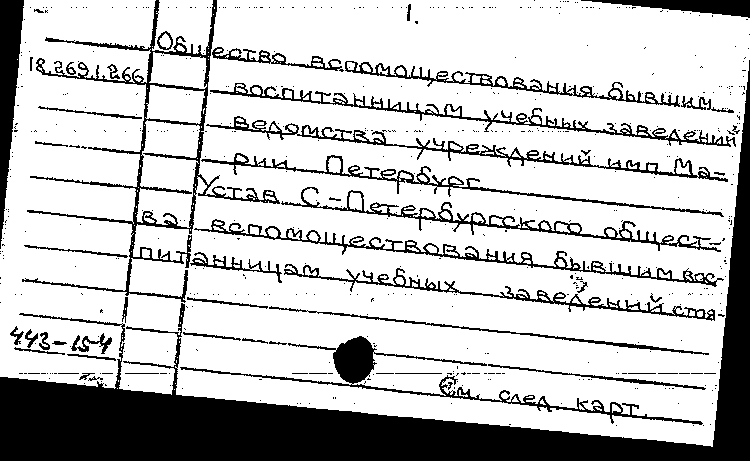 1.
Общество вспомоществования бывшим
18.269.1.266
воспитанницам учебных заведений
ведомства учреждений имп Ма-
рии. Петербург
Устав С-Петербургского общест-
ва вспомоществования бывшим вос-
питанницам учебных заведений стоя-
443-15-4
См. след. карт.